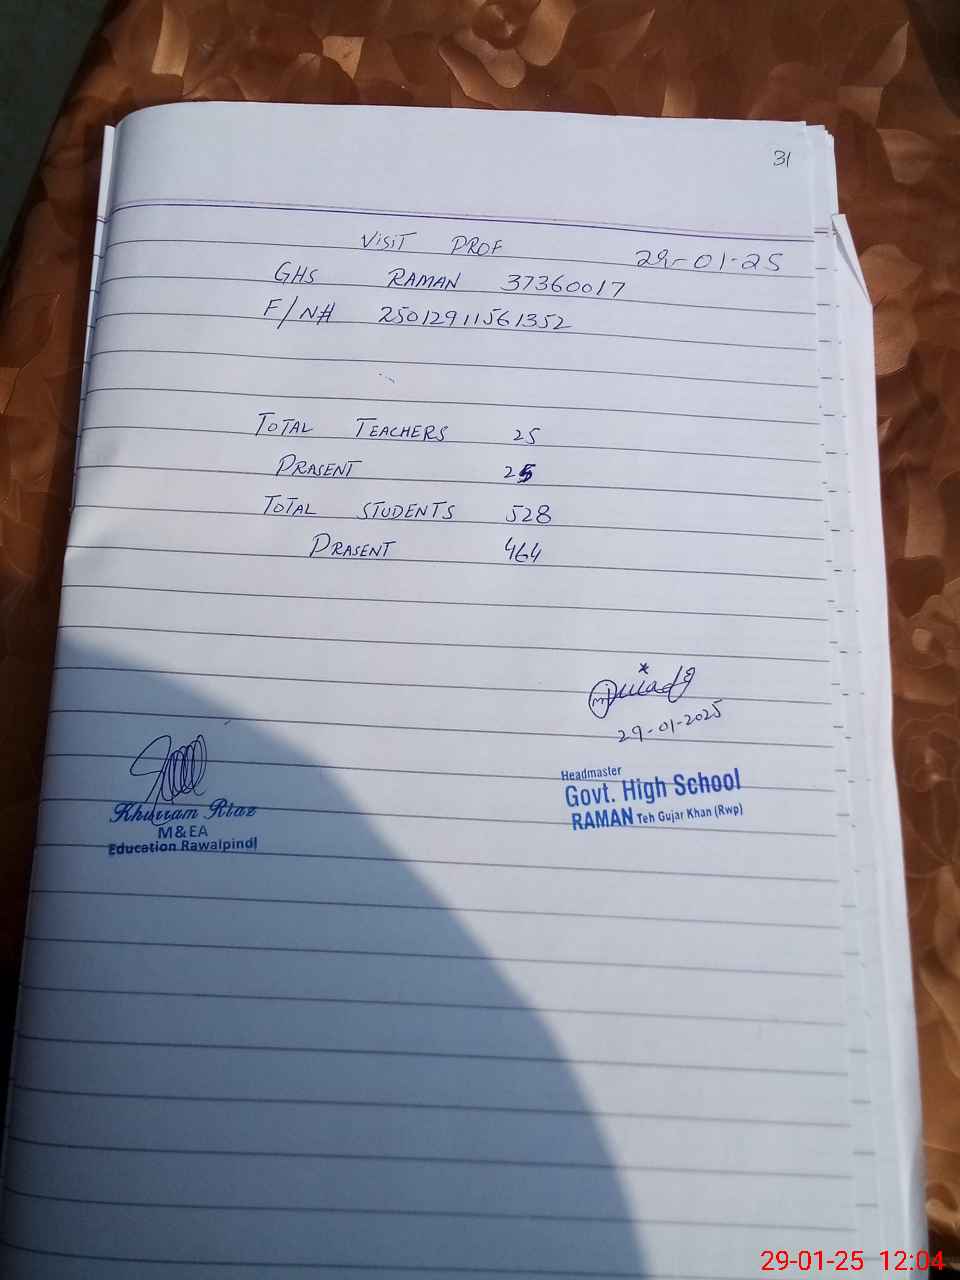 31
VISIT PROF 29-01-25
GHS RAMAN 37360017
F/N# 25012911561352
TOTAL TEACHERS 25
PRASENT 25
TOTAL STUDENTS 528
PRASENT 464
29-01-2025
Headmaster
Govt. High School
RAMAN Teh Gujar Khan (Rwp)
Khurram Riaz
M&EA
Education Rawalpindi
29-01-25 12:04